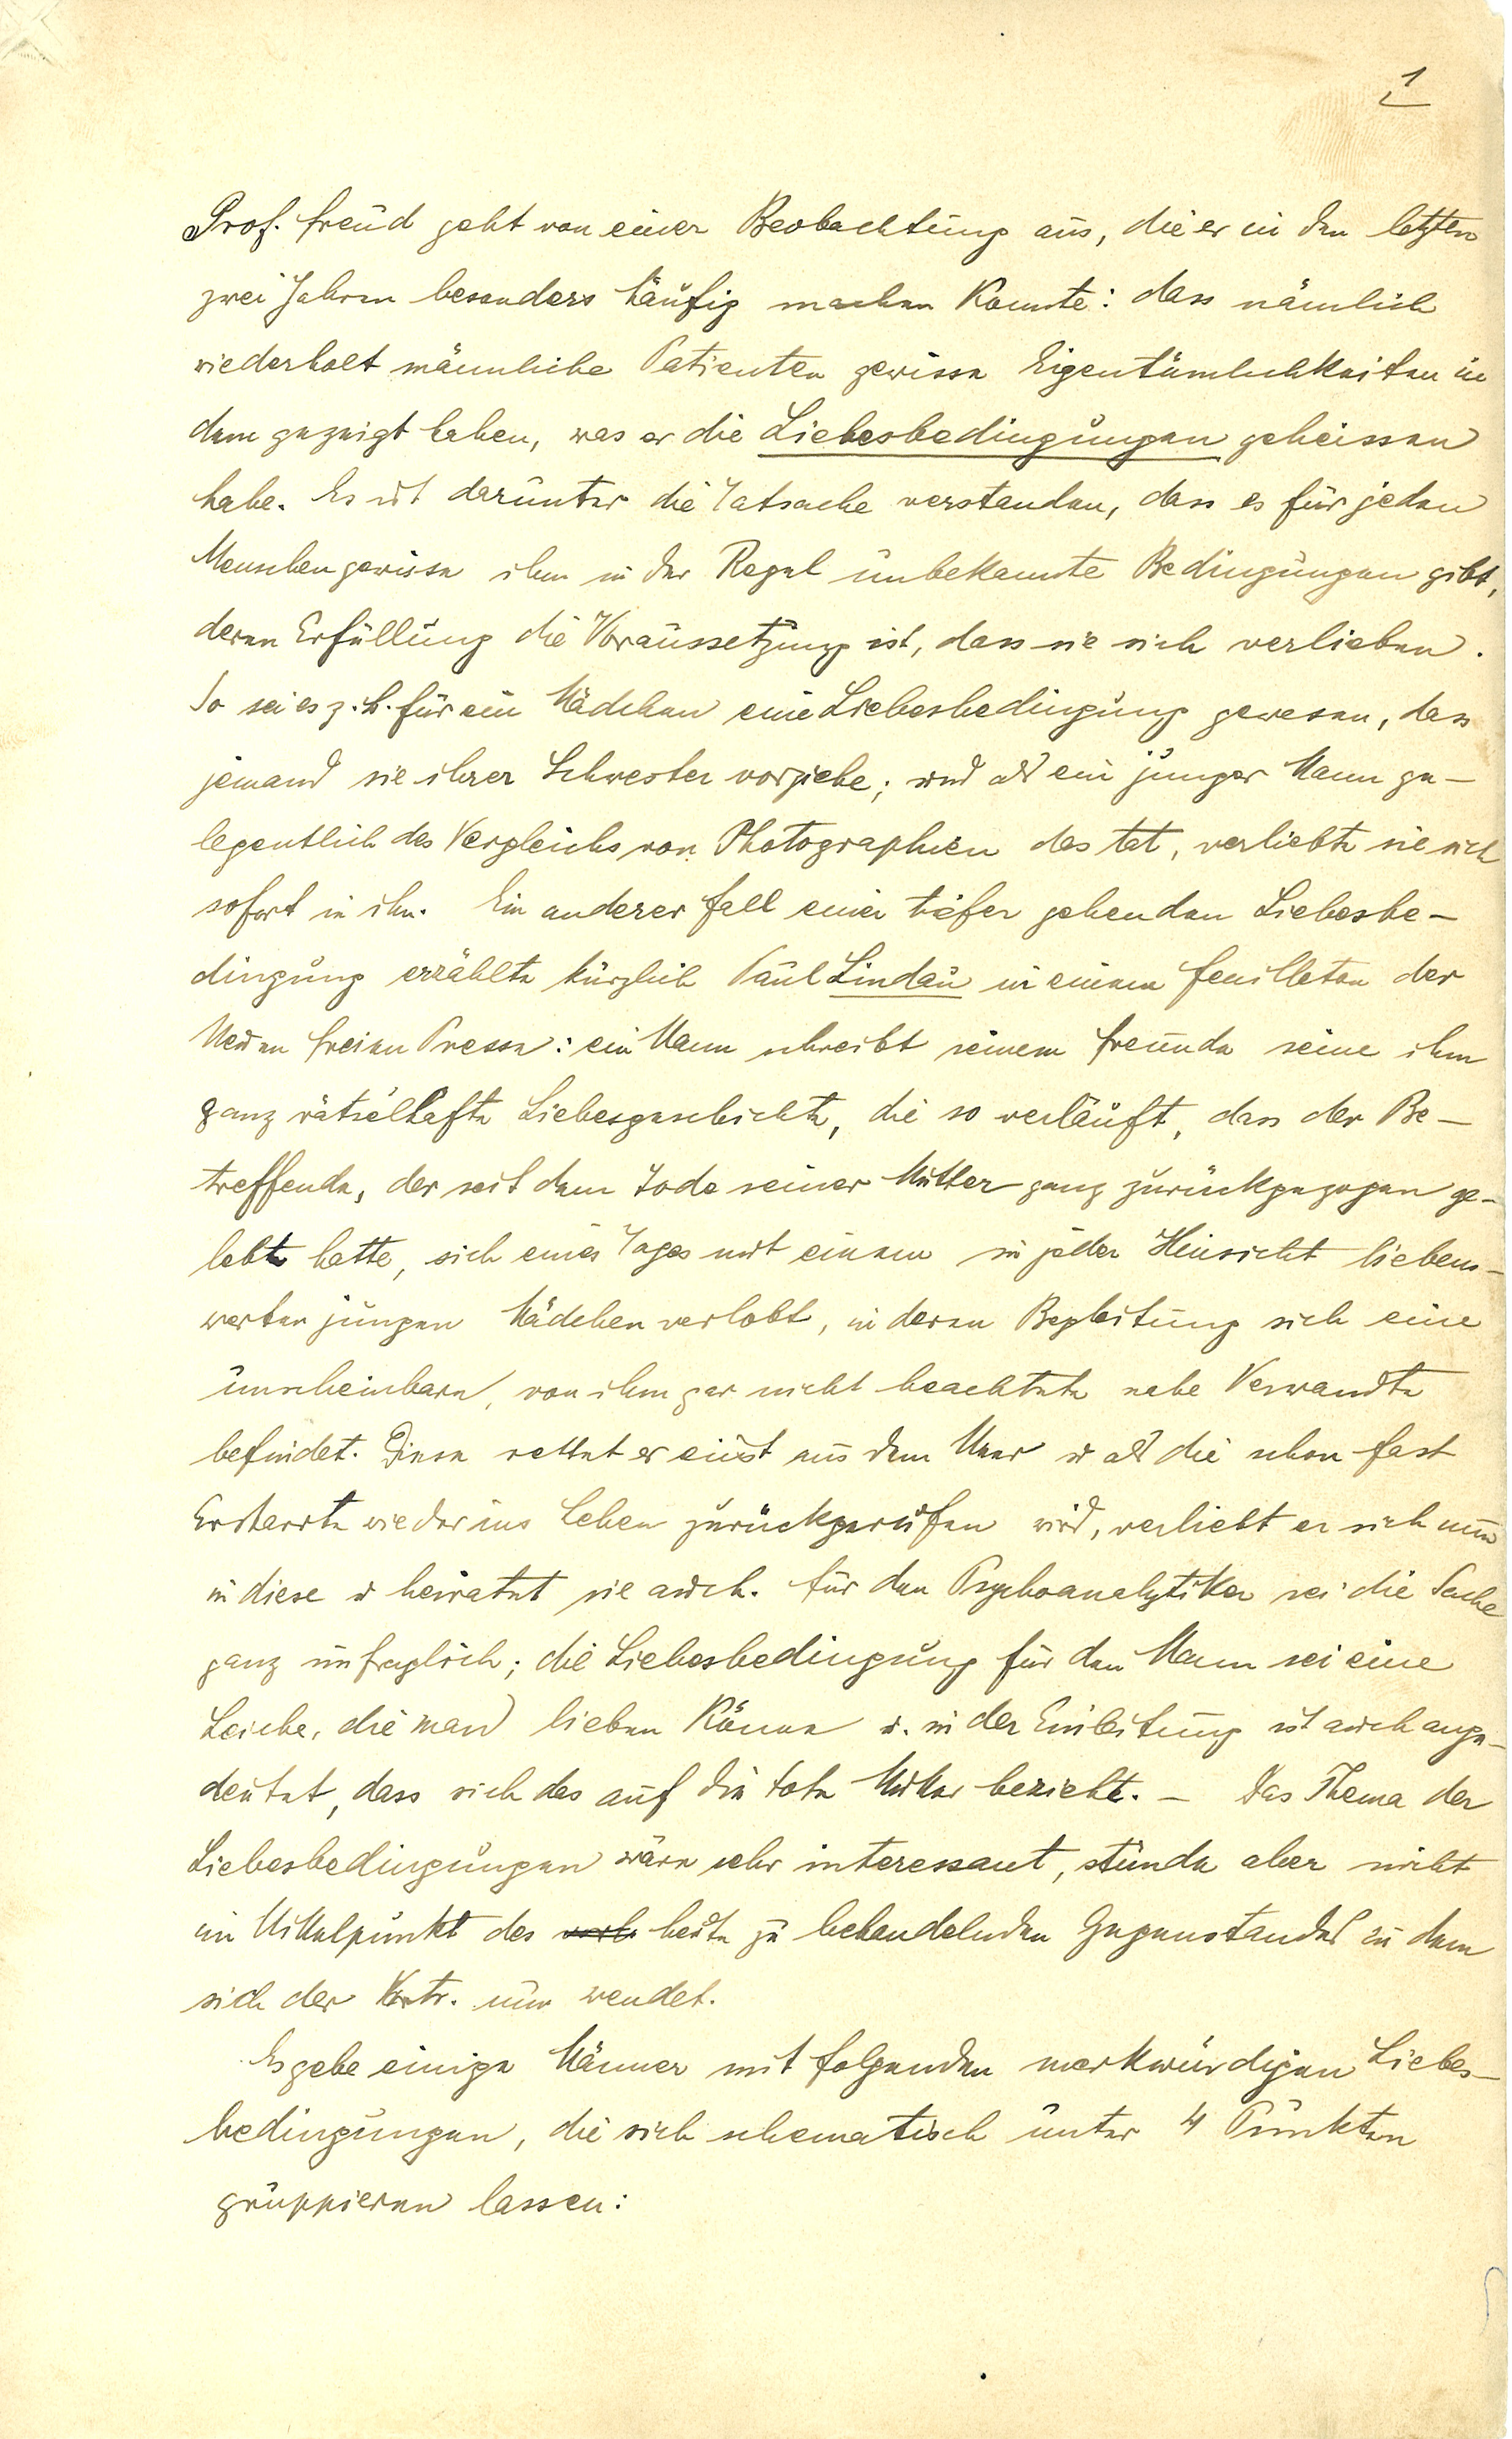 1
Prof. Freud geht von einer Beobachtung aus, die er in den letzten
zwei Jahren besonders häufig machen konnte: dass nämlich
wiederholt männliche Patienten gewisse Eigentümlichkeiten in
dem gezeigt haben, was er die Liebesbedingungen geheissen
habe. Es ist darunter die Tatsache verstanden, dass es für jeden
Menschen gewisse ihm in der Regel unbekannte Bedingungen gibt,
deren Erfüllung die Voraussetzung ist, dass sie sich verlieben.
So sei es z.B. für ein Mädchen eine Liebesbedingung gewesen, dass
jemand sie ihrer Schwester vorziehe; und als ein junger Mann ge-
legentlich des Vergleichs von Photographien das tat, verliebte sie sich
sofort in ihn. Ein anderer Fall einer tiefer gehenden Liebesbe-
dingung erzählte kürzlich Paul Lindau in einem Feuilleton der
Neuen freien Presse: ein Mann schreibt seinem Freunde seine ihm
ganz rätselhafte Liebesgeschichte, die so verläuft, dass der Be-
treffende, der seit dem Tode seiner Mutter ganz zurückgezogen ge-
lebt hatte, sich eines Tages mit einem in jeder Hinsicht liebens-
werten jungen Mädchen verlobt, in deren Begleitung sich eine
unscheinbare, von ihm gar nicht beachtete nahe Verwandte
befindet. Diese rettet er einst aus dem Meer u als die schon fast
Erstarrte wieder ins Leben zurückgerufen wird, verliebt er sich nun
in diese u heiratet sie auch. Für den Psychoanalytiker sei die Sache
ganz unfraglich; die Liebesbedingung für den Mann sei eine
Leiche, die man lieben könne u. in der Einleitung ist auch ange-
deutet, dass sich das auf die tote Mutter bezieht. - Das Thema der
Liebesbedingungen wäre sehr interessant, stünde aber nicht
im Mittelpunkt des heute zu behandelnden Gegenstandes zu dem
sich der Vortr. nun wendet.
Es gebe einige Männer mit folgenden merkwürdigen Liebes-
bedingungen, die sich schematisch unter 4 Punkten
gruppieren lassen: